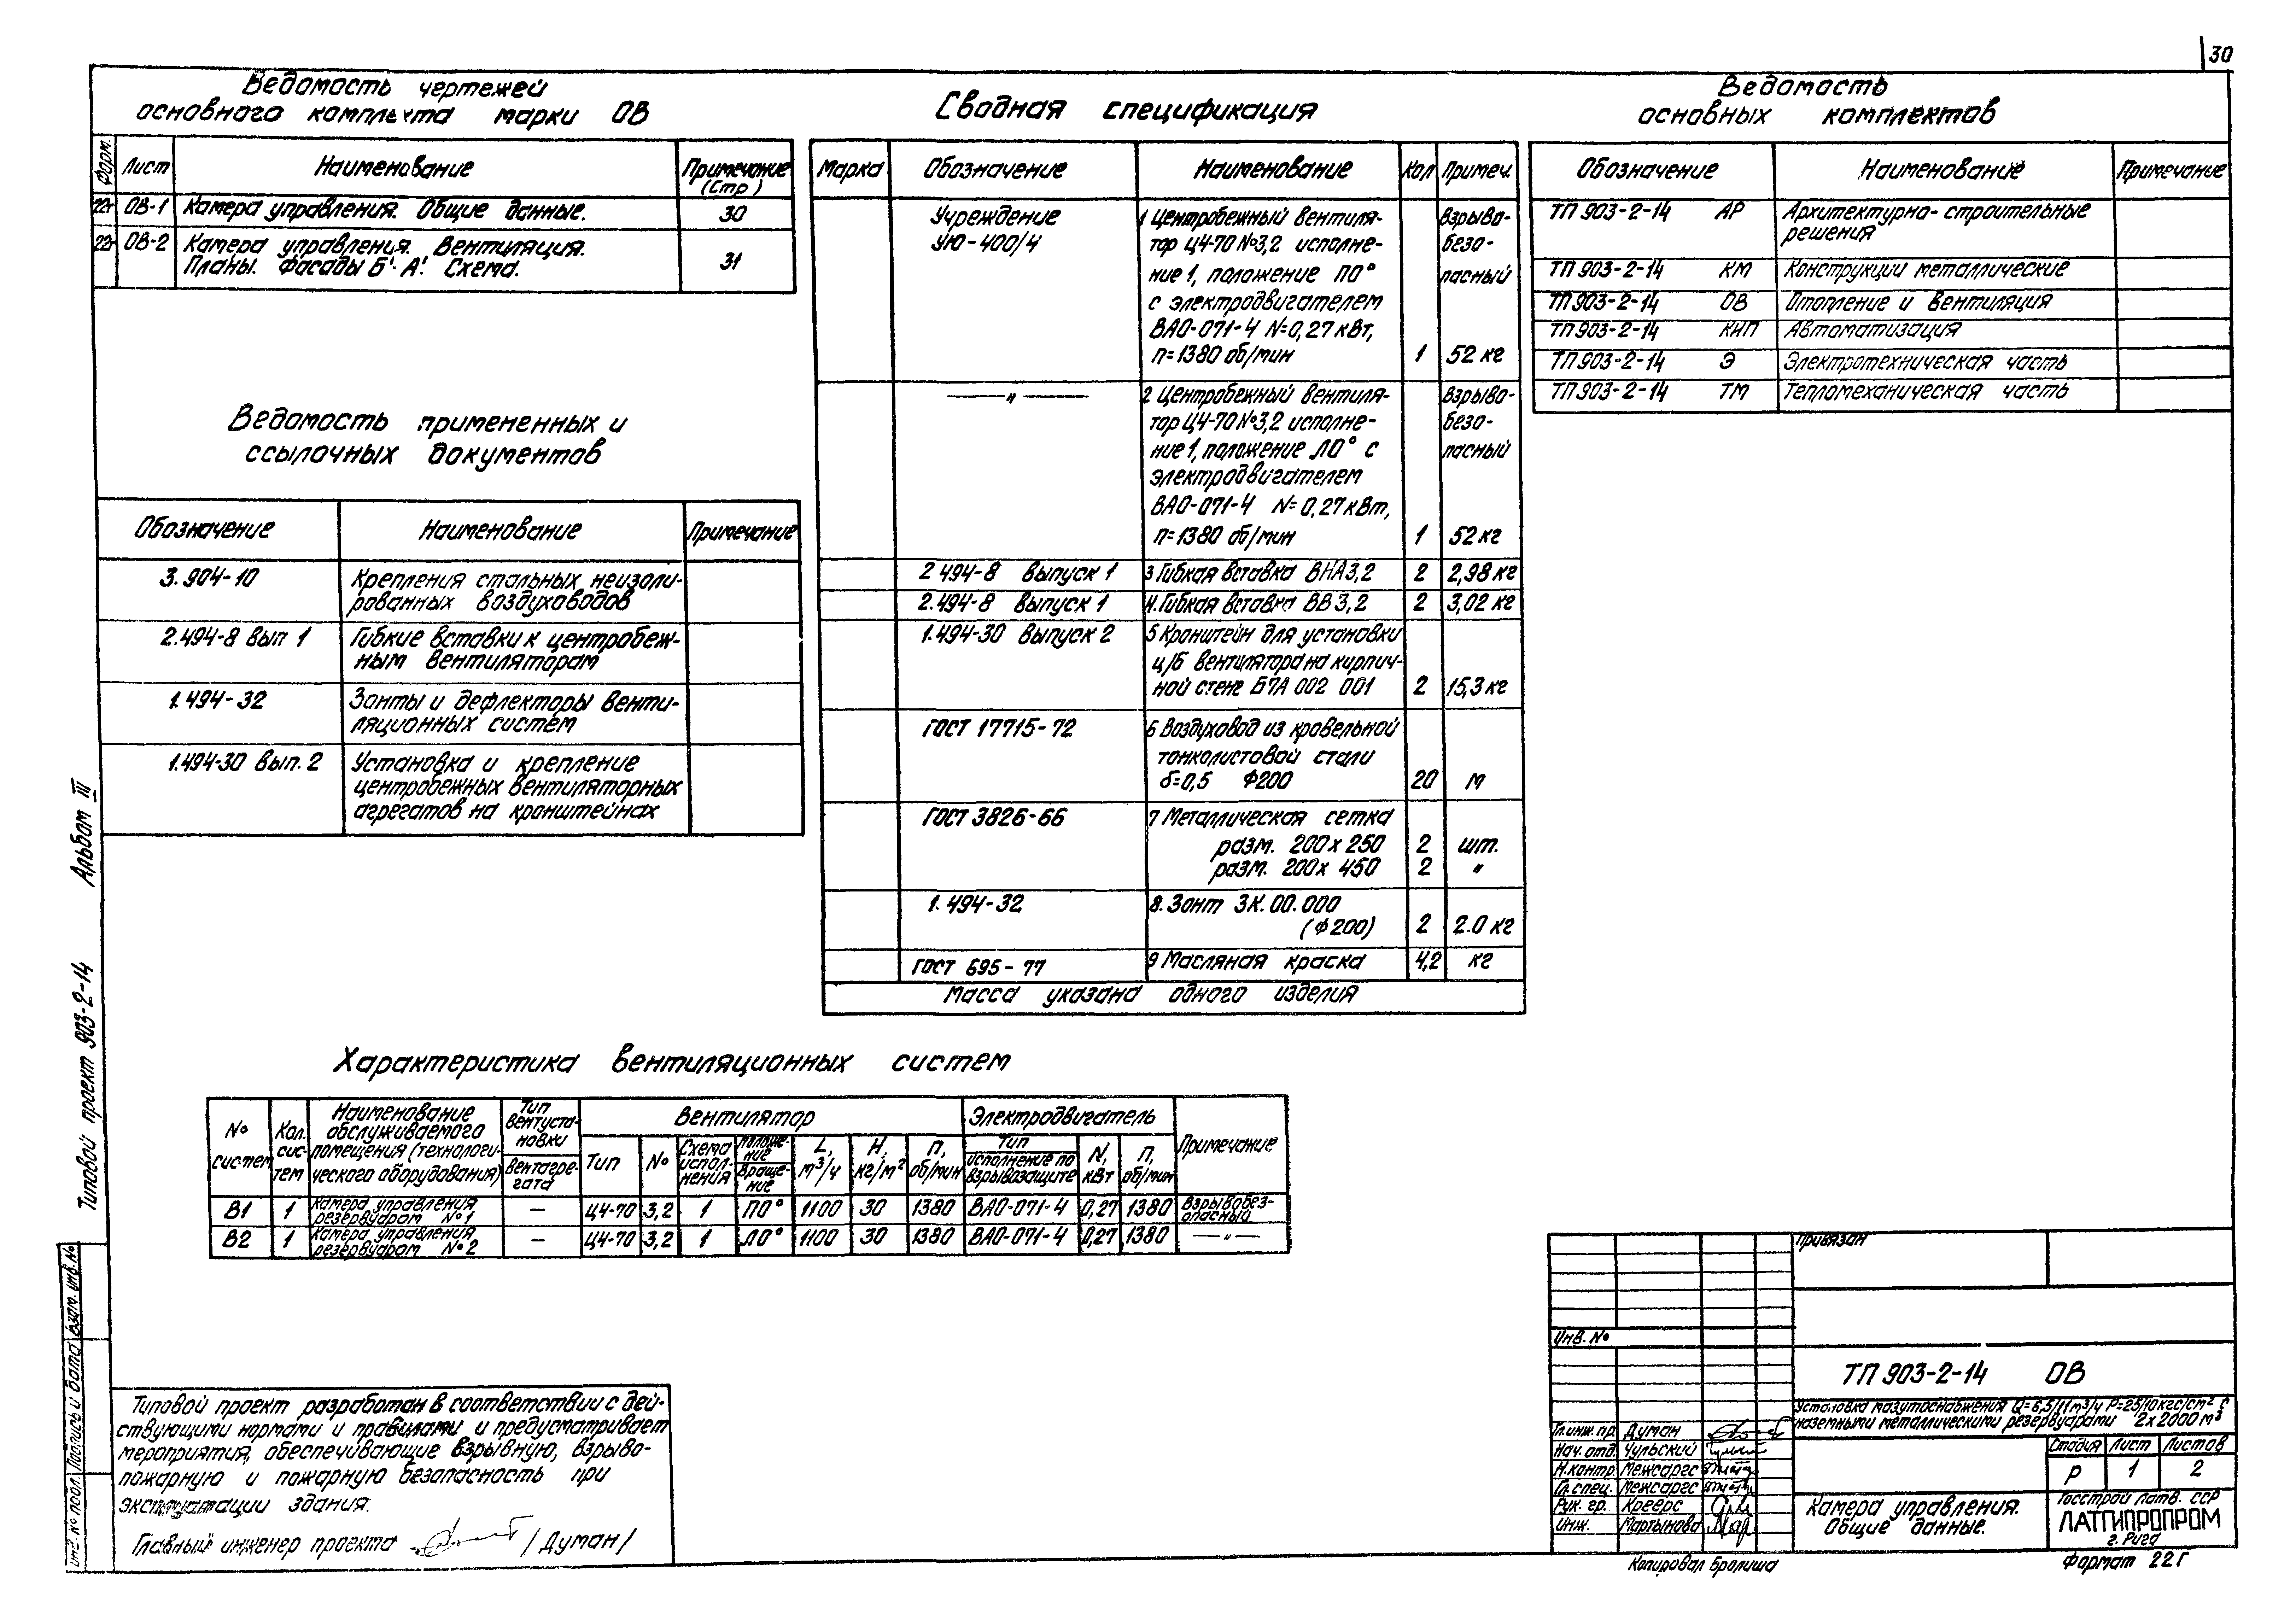 30
Ведомость чертежей
основного комплекта марки ОВ
Форм. Лист Наименование Примечание (Стр)
22г ОВ-1 Камера управления. Общие данные. 30
22г ОВ-2 Камера управления. Вентиляция.
Планы. Фасады Б'-А'. Схема. 31
Ведомость примененных и
ссылочных документов
Обозначение Наименование Примечание
3.904-10 Крепления стальных неизоли-
рованных воздуховодов
2.494-8 вып 1 Гибкие вставки к центробеж-
ным вентиляторам
1.494-32 Зонты и дефлекторы венти-
ляционных систем
1.494-30 вып. 2 Установка и крепление
центробежных вентиляторных
агрегатов на кронштейнах
Сводная спецификация
Марка Обозначение Наименование Кол Примеч.
Учреждение 1 Центробежный вентиля- взрыво-
УЮ-400/4 тор Ц4-70 №3,2 исполне- безо-
ние 1, положение П0° пасный
с электродвигателем
ВАО-071-4 N=0,27 кВт,
п=1380 об/мин 1 52 кг
—„— 2 Центробежный вентиля- взрыво-
тор Ц4-70 №3,2 исполне- безо-
ние 1, положение Л0° с пасный
электродвигателем
ВАО-071-4 N=0,27 кВт,
п=1380 об/мин 1 52 кг
2 494-8 выпуск 1 3 Гибкая вставка ВНА3,2 2 2,98 кг
2.494-8 выпуск 1 4. Гибкая вставка ВВ 3,2 2 3,02 кг
1.494-30 выпуск 2 5 Кронштейн для установки
ц/б вентилятора на кирпич-
ной стене Б7А 002 001 2 15,3 кг
ГОСТ 17715-72 6 Воздуховод из кровельной
тонколистовой стали
δ=0,5 Ф200 20 м
ГОСТ 3826-66 7 Металлическая сетка
разм. 200х250 2 шт.
разм. 200х450 2 "
1.494-32 8. Зонт ЗК.00.000
(Ф200) 2 2.0 кг
ГОСТ 695-77 9 Масляная краска 4,2 кг
Масса указана одного изделия
Ведомость
основных комплектов
Обозначение Наименование Примечание
ТП 903-2-14 АР Архитектурно-строительные
решения
ТП 903-2-14 КМ Конструкции металлические
ТП 903-2-14 ОВ Отопление и вентиляция
ТП 903-2-14 КИП Автоматизация
ТП 903-2-14 Э Электротехническая часть
ТП 903-2-14 ТМ Тепломеханическая часть
Характеристика вентиляционных систем
№ систем Кол. сис-тем Наименование обслуживаемого помещения (технологи-ческого оборудования) Тип вентуста-новки Вентагре-гата Вентилятор Электродвигатель Примечание
Тип № Схема испол-нения Положе-ние Враще-ние L, м³/ч Н, кг/м² П, об/мин Тип исполнение по взрывозащите N, кВт П, об/мин
В1 1 Камера управления резервуаром №1 — Ц4-70 3,2 1 П0° 1100 30 1380 ВАО-071-4 0,27 1380 Взрывобез-опасный
В2 1 Камера управления резервуаром №2 — Ц4-70 3,2 1 Л0° 1100 30 1380 ВАО-071-4 0,27 1380 —„—
Типовой проект 903-2-14 Альбом III
Инв. № подл. Подпись и дата Взам. инв. №
Типовой проект разработан в соответствии с дей-
ствующими нормами и правилами и предусматривает
мероприятия, обеспечивающие взрывную, взрыво-
пожарную и пожарную безопасность при
эксплуатации здания.
Главный инженер проекта /Думан/
Привязан
Инв. №
ТП 903-2-14 ОВ
Установка мазутоснабжения Q=6,5/11 м³/ч Р=25/10 кгс/см² с
наземными металлическими резервуарами 2х2000 м³
Гл.инж.пр. Думан
Нач. отд. Чульский
Н.контр. Межсаргс
Гл.спец. Межсаргс
Рук. гр. Креерс
Инж. Мартынова
Стадия Лист Листов
Р 1 2
Камера управления.
Общие данные.
Госстрой Латв. ССР
ЛАТГИПРОПРОМ
г. Рига
Копировал Бролиша
Формат 22Г